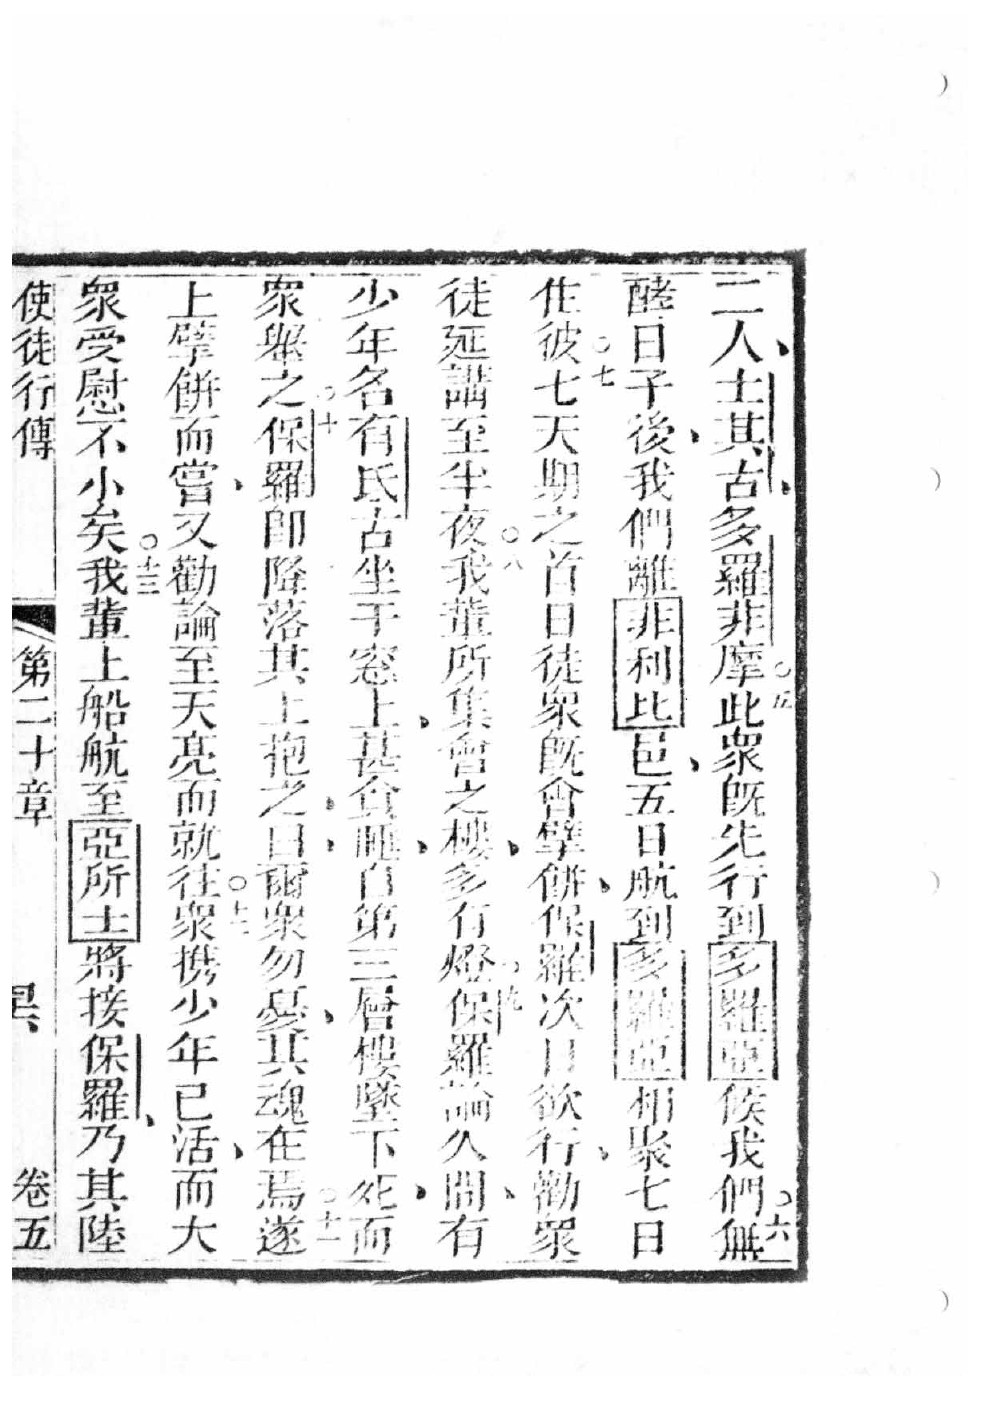 二人士其古多羅非摩○五此眾既先行到多羅亞候我們○六無
酵日子後我們離非利比邑五日航到多羅亞相聚七日
住彼○七七天期之首日徒眾既會擘餅保羅次日欲行勸眾
徒延講至半夜○八我輩所集會之樓多有燈○九保羅論久間有
少年名有氏古坐于窓上甚貪睡自第三層樓墜下死而
眾舉之○十保羅即降落其上抱之曰爾眾勿憂其魂在焉○十一遂
上擘餅而嘗又勸論至天亮而就往○十二眾携少年已活而大
眾受慰不小矣○十三我輩上船航至亞所士將接保羅乃其陸
使徒行傳 第二十章 卷五